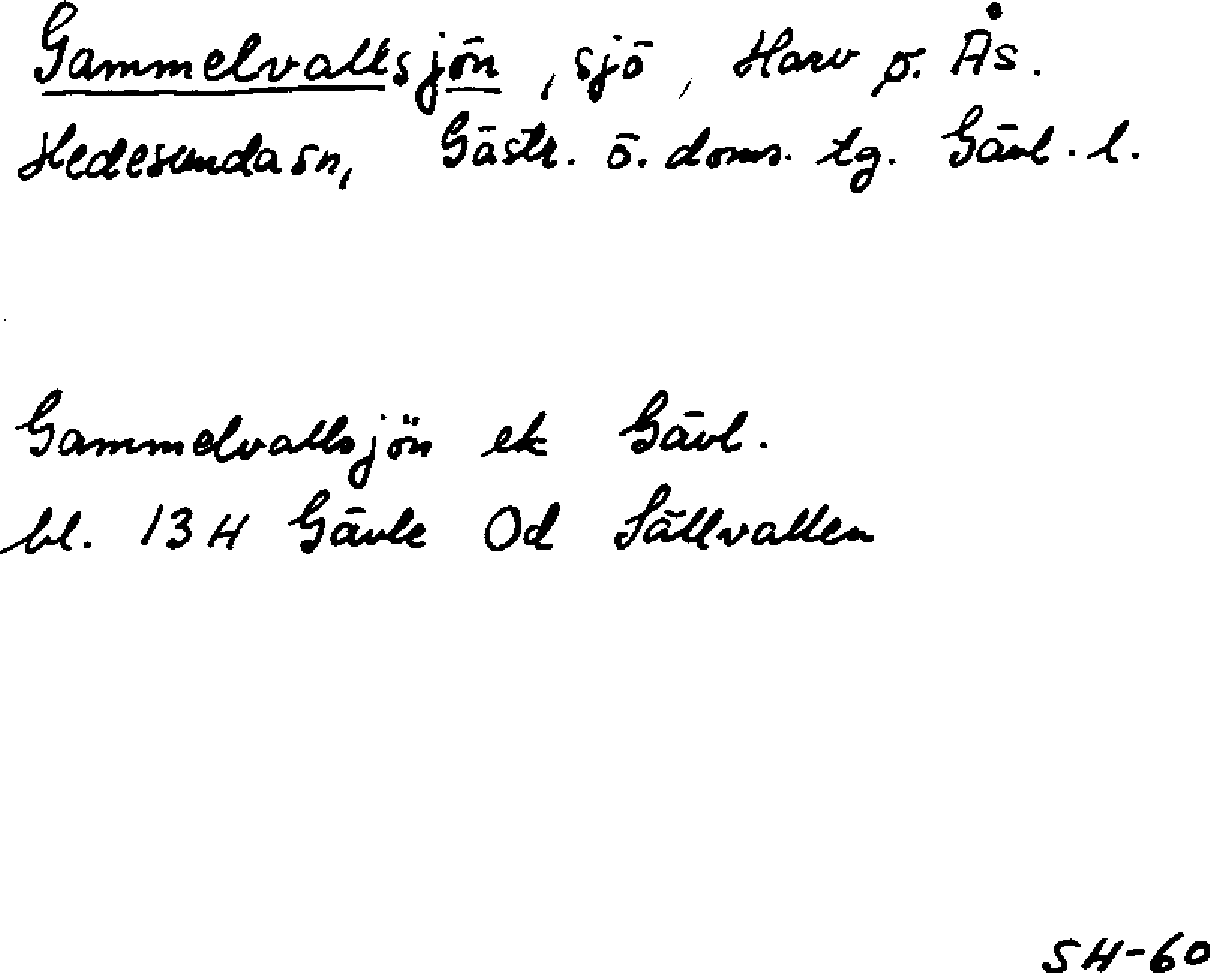 Gammelvallsjön, sjö, Harv o. Ås.
Hedesunda sn, Gästr. ö. doms. tg. Gävl. l.
Gammelvallsjön ek Gävl.
bl. 13 H Gävle Od Sällvallen
SH-60